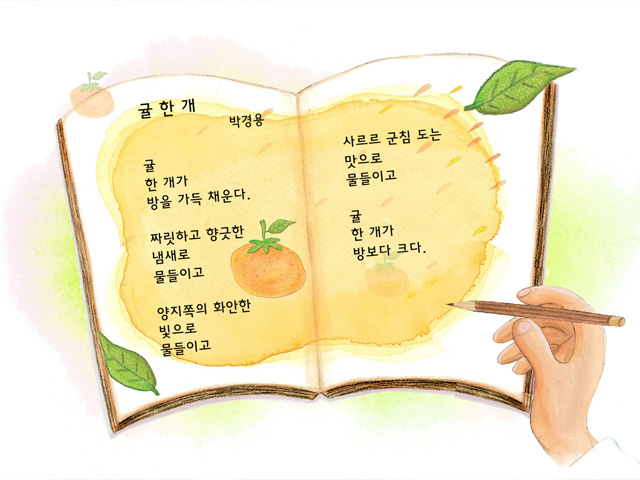 귤 한 개
박경용
귤
한 개가
방을 가득 채운다.
짜릿하고 향긋한
냄새로
물들이고
양지쪽의 화안한
빛으로
물들이고
사르르 군침 도는
맛으로
물들이고
귤
한 개가
방보다 크다.